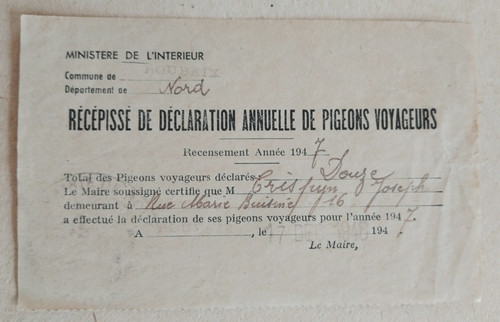 MINISTERE DE L'INTERIEUR
Commune de
Département de Nord
RÉCÉPISSÉ DE DÉCLARATION ANNUELLE DE PIGEONS VOYAGEURS
Recensement Année 1947
Total des Pigeons voyageurs déclarés Douze
Le Maire soussigné certifie que M Joseph
demeurant à Rue Marie 16
a effectué la déclaration de ses pigeons voyageurs pour l'année 1947.
A , le 17 194
Le Maire,